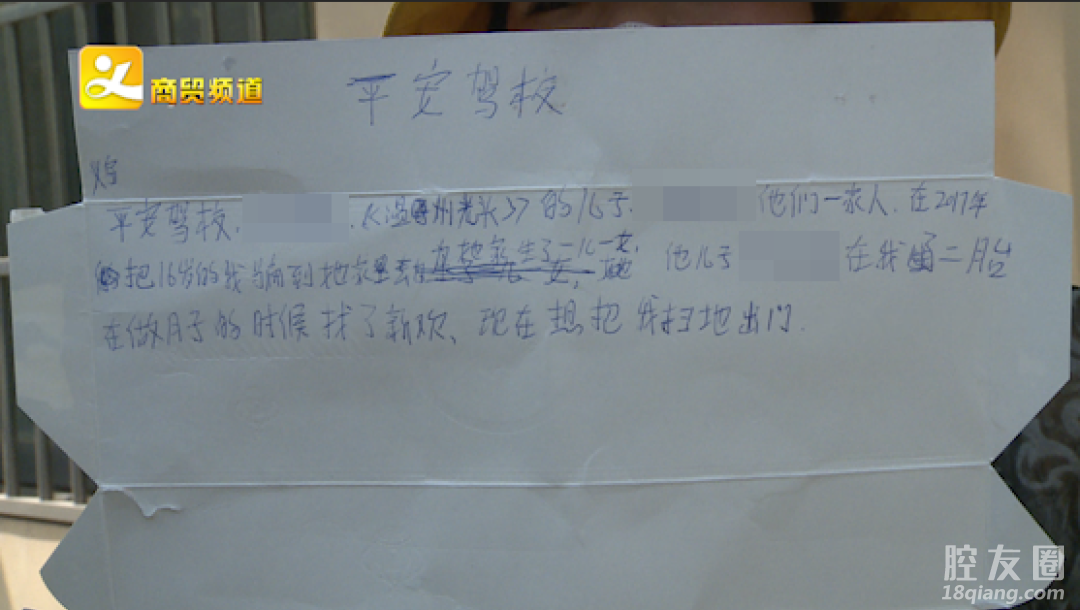 商贸频道
平安驾校
平安驾校, 温州光头 的儿子 他们一家人. 在2017年
把16岁的我骗到他家里 在她家生了一儿一女, 他儿子 在我 二月台
在做月子的时候找了新欢、现在想把我扫地出门.
腔友圈
18qiang.com